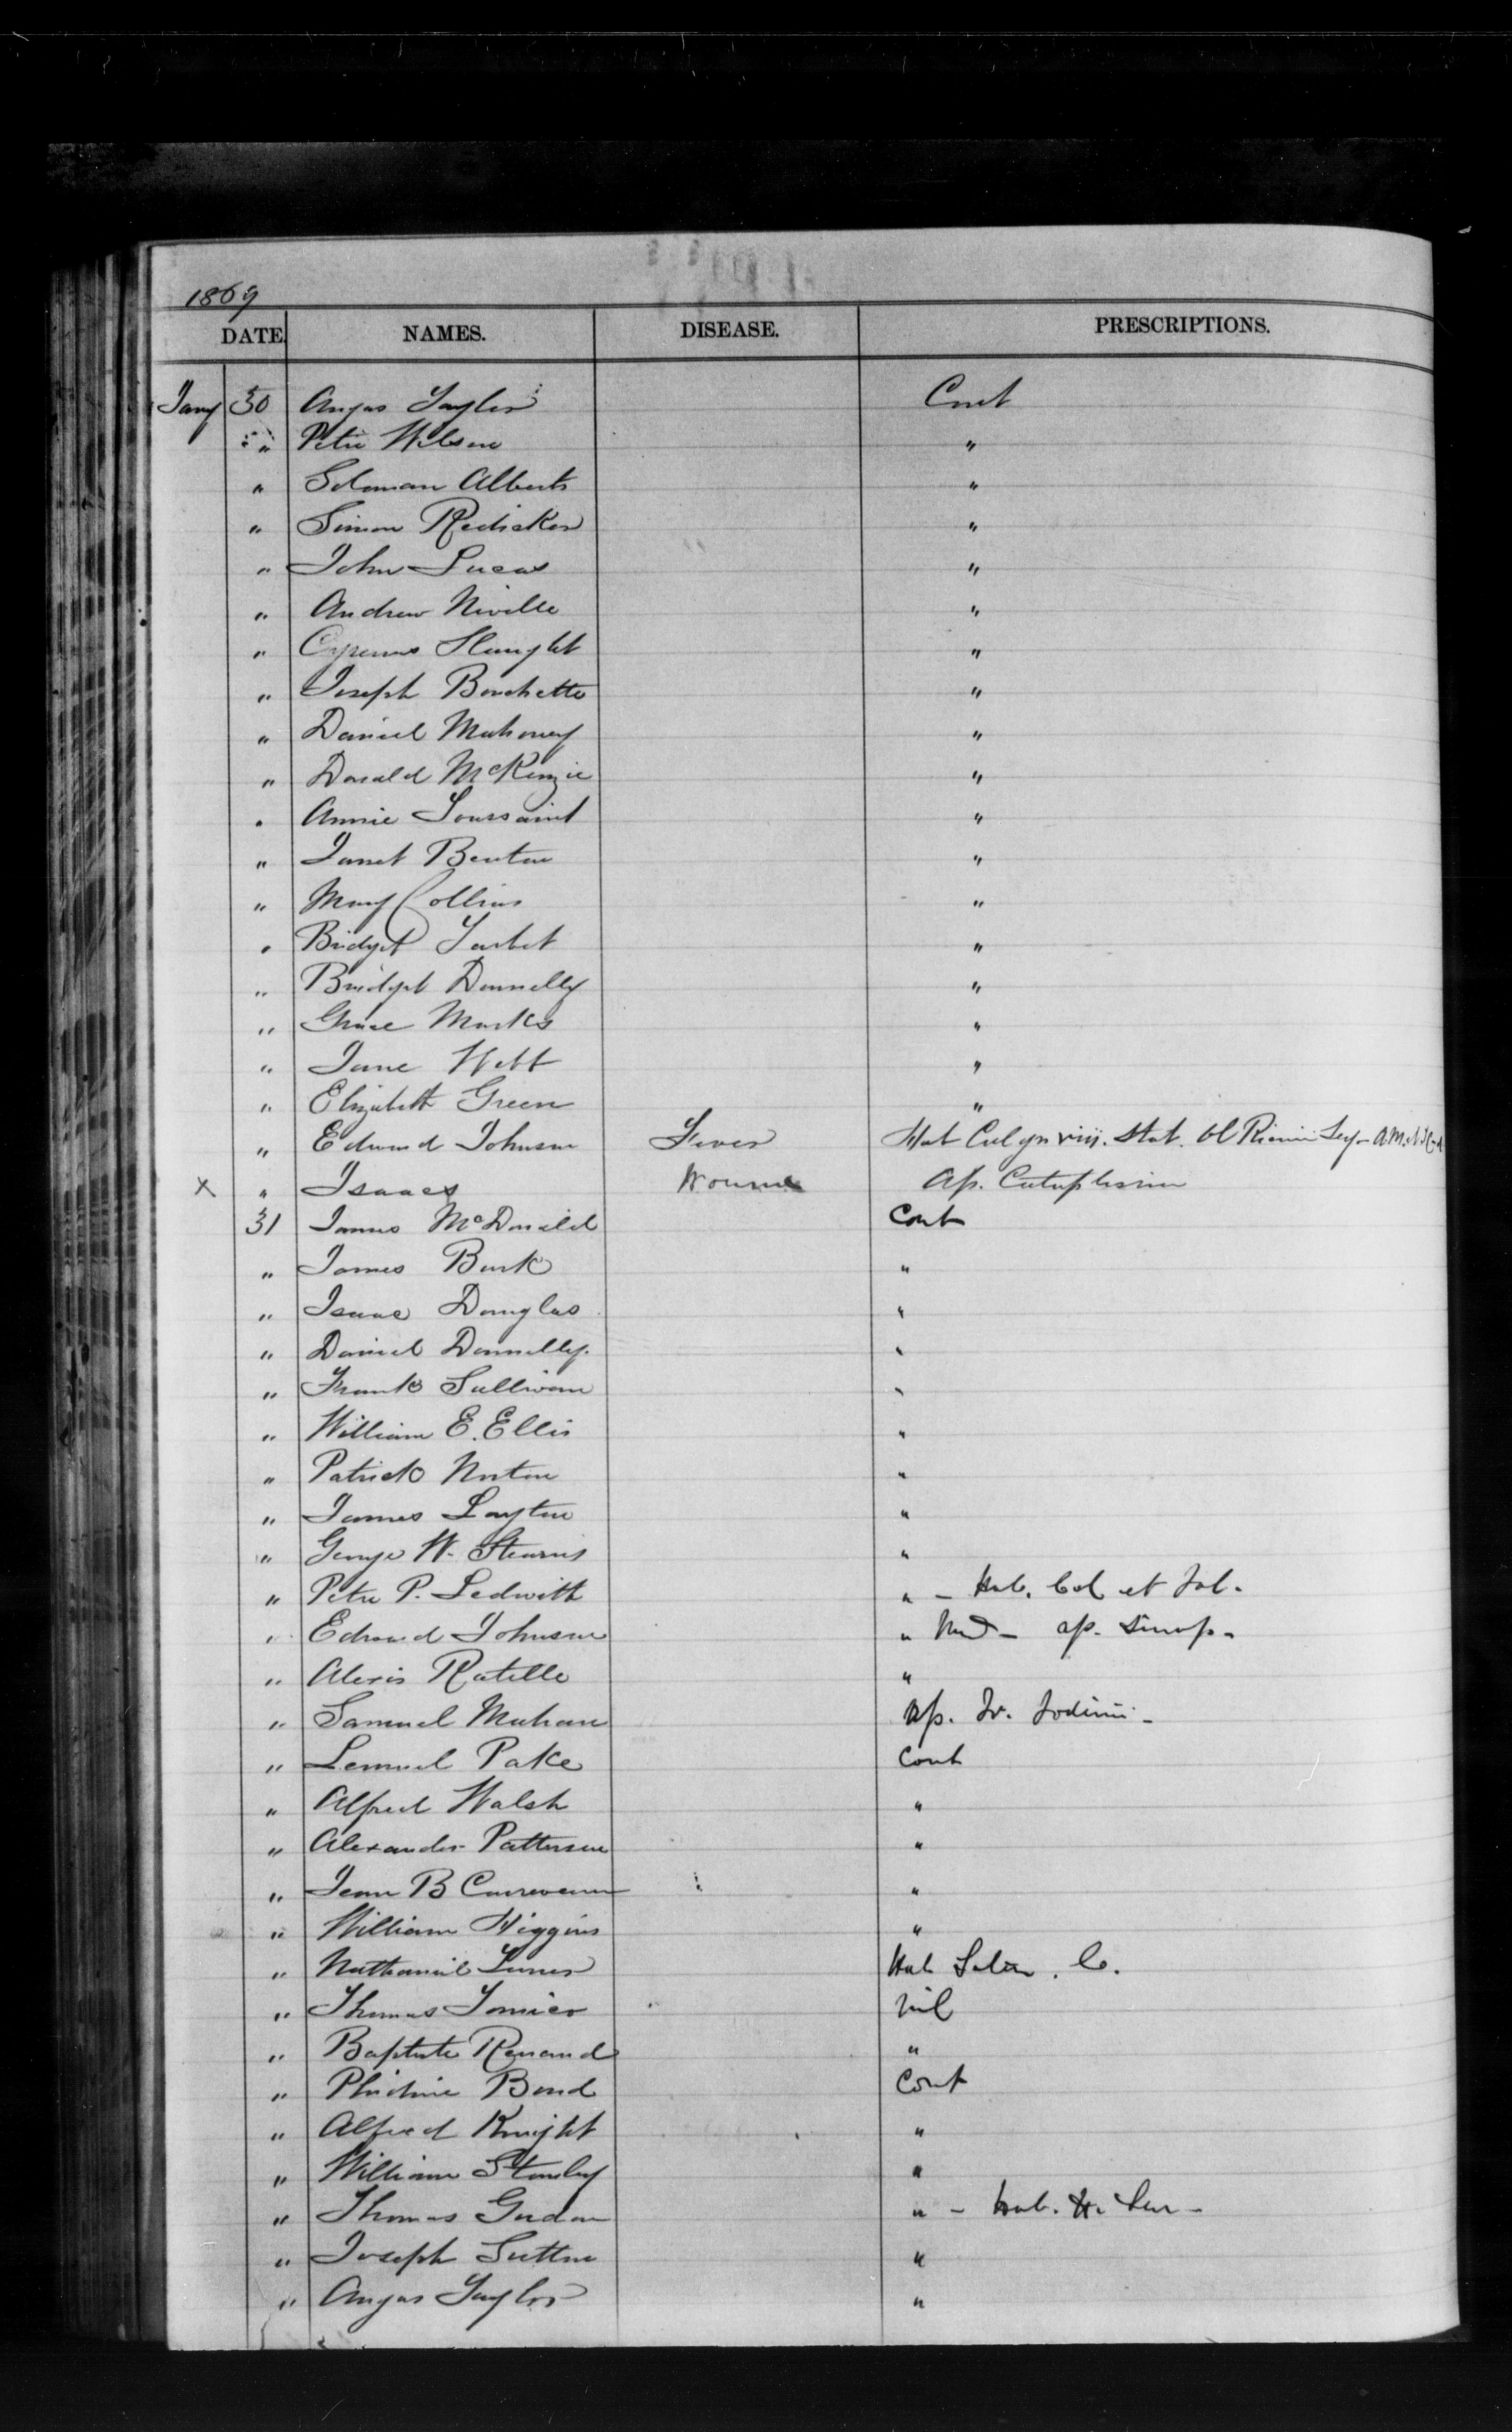 1869
DATE. NAMES. DISEASE. PRESCRIPTIONS.
Jany 30 Angus Taylor Cont
" Peter Wilson "
" Soloman Alberts "
" Simon Redicker "
" John Lucas "
" Andrew Niville "
" Cyrenus Slaught "
" Joseph Bouchette "
" Daniel Mahoney "
" Donald McKenzie "
" Annie Toussaint "
" Janet Benton "
" Mary Collins "
" Bridget Tarbet "
" Bridget Donnelly "
" Grace Marks "
" Jane Webb "
" Elizabeth Green "
" Edward Johnson Fever Hab Cal grs viii. Stat. Ol Ricini
X " Isaacs Wound Ap. Cataplasm
31 James McDonald Cont
" James Burk "
" Isaac Douglas "
" Daniel Donnelly. "
" Frank Sullivan "
" William E. Ellis "
" Patrick Norton "
" James Layton "
" George W. Stearns "
" Peter P. Ledwith " - Hab. Col et Jal.
" Edward Johnson " Med - ap. Sinap -
" Alexis Ratelle "
" Samuel Mahan Ap. Tr. Iodinii -
" Lemuel Pake Cont
" Alfred Walsh "
" Alexander Patterson "
" Jean B "
" William Higgins "
" Nathaniel Hab
" Thomas nil
" Baptiste Renaud "
" Bond Cont
" Alfred Knight "
" William Stanley "
" Thomas Gordon " - Hab.
" Joseph Sutton "
" Angus Taylor "